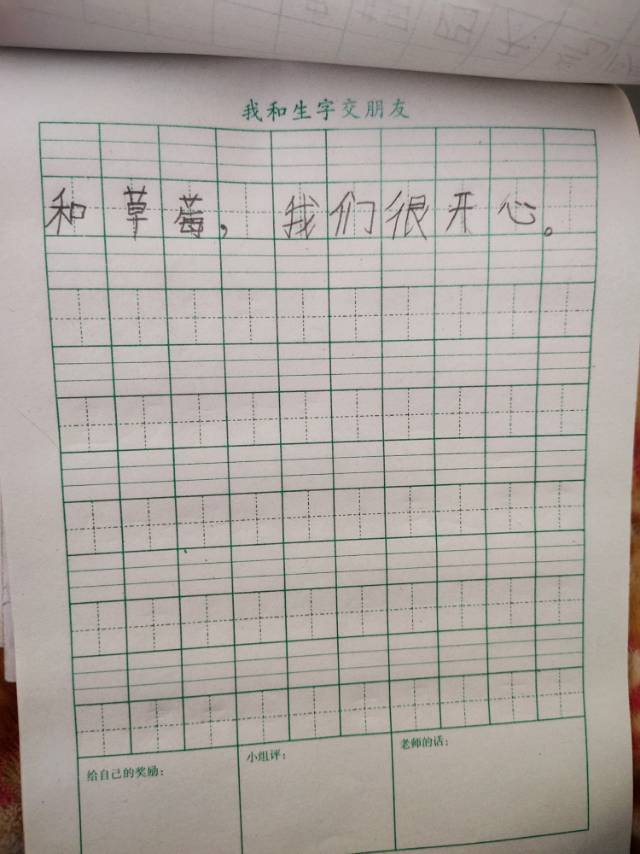 我和生字交朋友
和草莓，我们很开心。
给自己的奖励：
小组评：
老师的话：